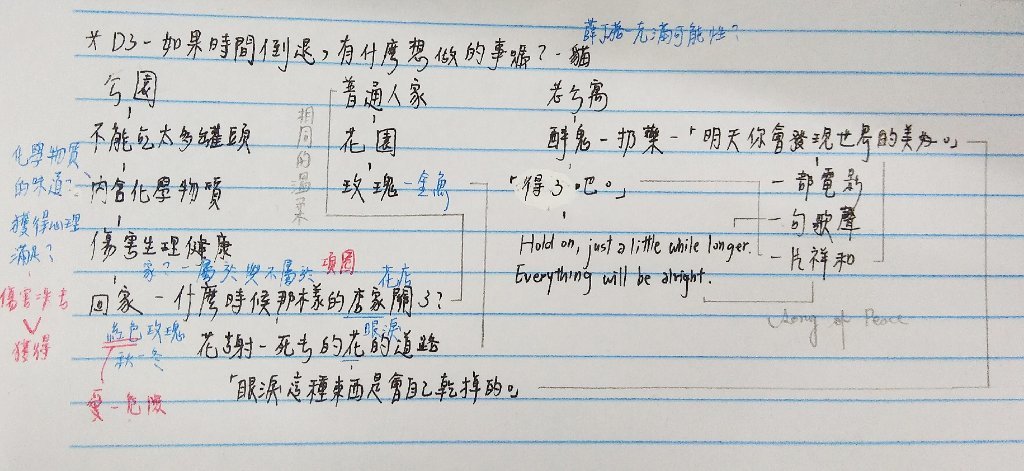 薛丁格-充滿可能性?
* D3-如果時間倒退,有什麼想做的事嗎?-貓
公園
普通人家
老公寓
相同的溫柔
不能吃太多罐頭
花園
醉鬼-扔藥-「明天你會發現世界的美好。」
化學物質的味道?
內含化學物質
玫瑰-金魚
「得了吧。」
一部電影
獲得心理滿足?
傷害生理健康
一句歌聲
Hold on, just a little while longer.
一片祥和
Everything will be alright.
家?-屬於與不屬於
項圈
花店
傷害→失去
獲得
回家-什麼時候那樣的店家關了?
Song of Peace
藍色玫瑰
秋-冬
眼淚
花謝-死去的花的道路
愛-危險
「眼淚這種東西是會自己乾掉的。」